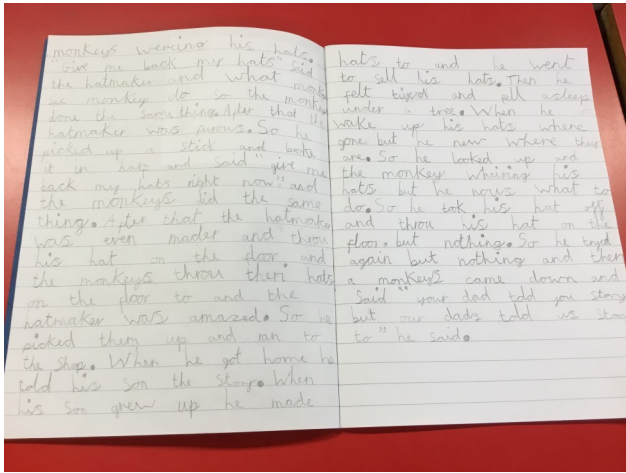 monkeys wereing his hats.
"Give me back my hats" said
the hatmaker and what monkey
see monkey do so the monkey
done the same thing. After that the
hatmaker was So he
picked up a stick and
it in half and said "give me
back my hats right now" and
the monkeys did the same
thing. After that the hatmaker
was even mader and throu
his hat on the floor and
the monkeys throu theri hats
on the floor to and the
hatmaker was amazed. So he
picked them up and ran to
the shop. When he got home he
told his son the story. When
his son grew up he made
hats to and he went
to sell his hats. Then he
felt tiyerd and fell asleep
under a tree. When he
wake up his hats where
gone but he new where they
are. So he looked up and
the monkey his
hats but he nows what to
do. So he tok his hat off
and throu his hat on the
floor. but nothing. So he tryd
again but nothing and then
a monkeys came down and
said "your dad told you story
but our dads told us story
to" he said.